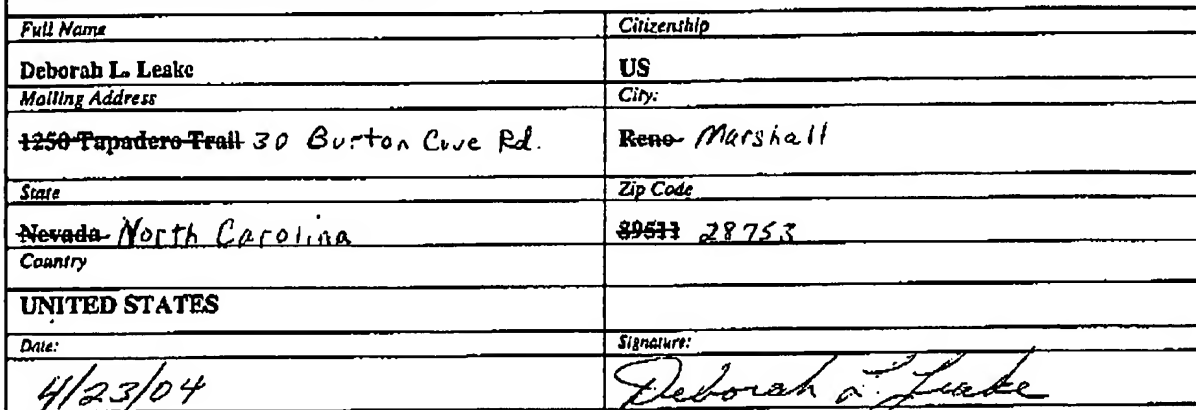 Full Name Citizenship
Deborah L. Leake US
Mailing Address City:
1250 Tapadero Trail 30 Burton Cove Rd. Reno Marshall
State Zip Code
Nevada North Carolina 89511 28753
Country
UNITED STATES
Date: Signature:
4/23/04 Deborah L. Leake